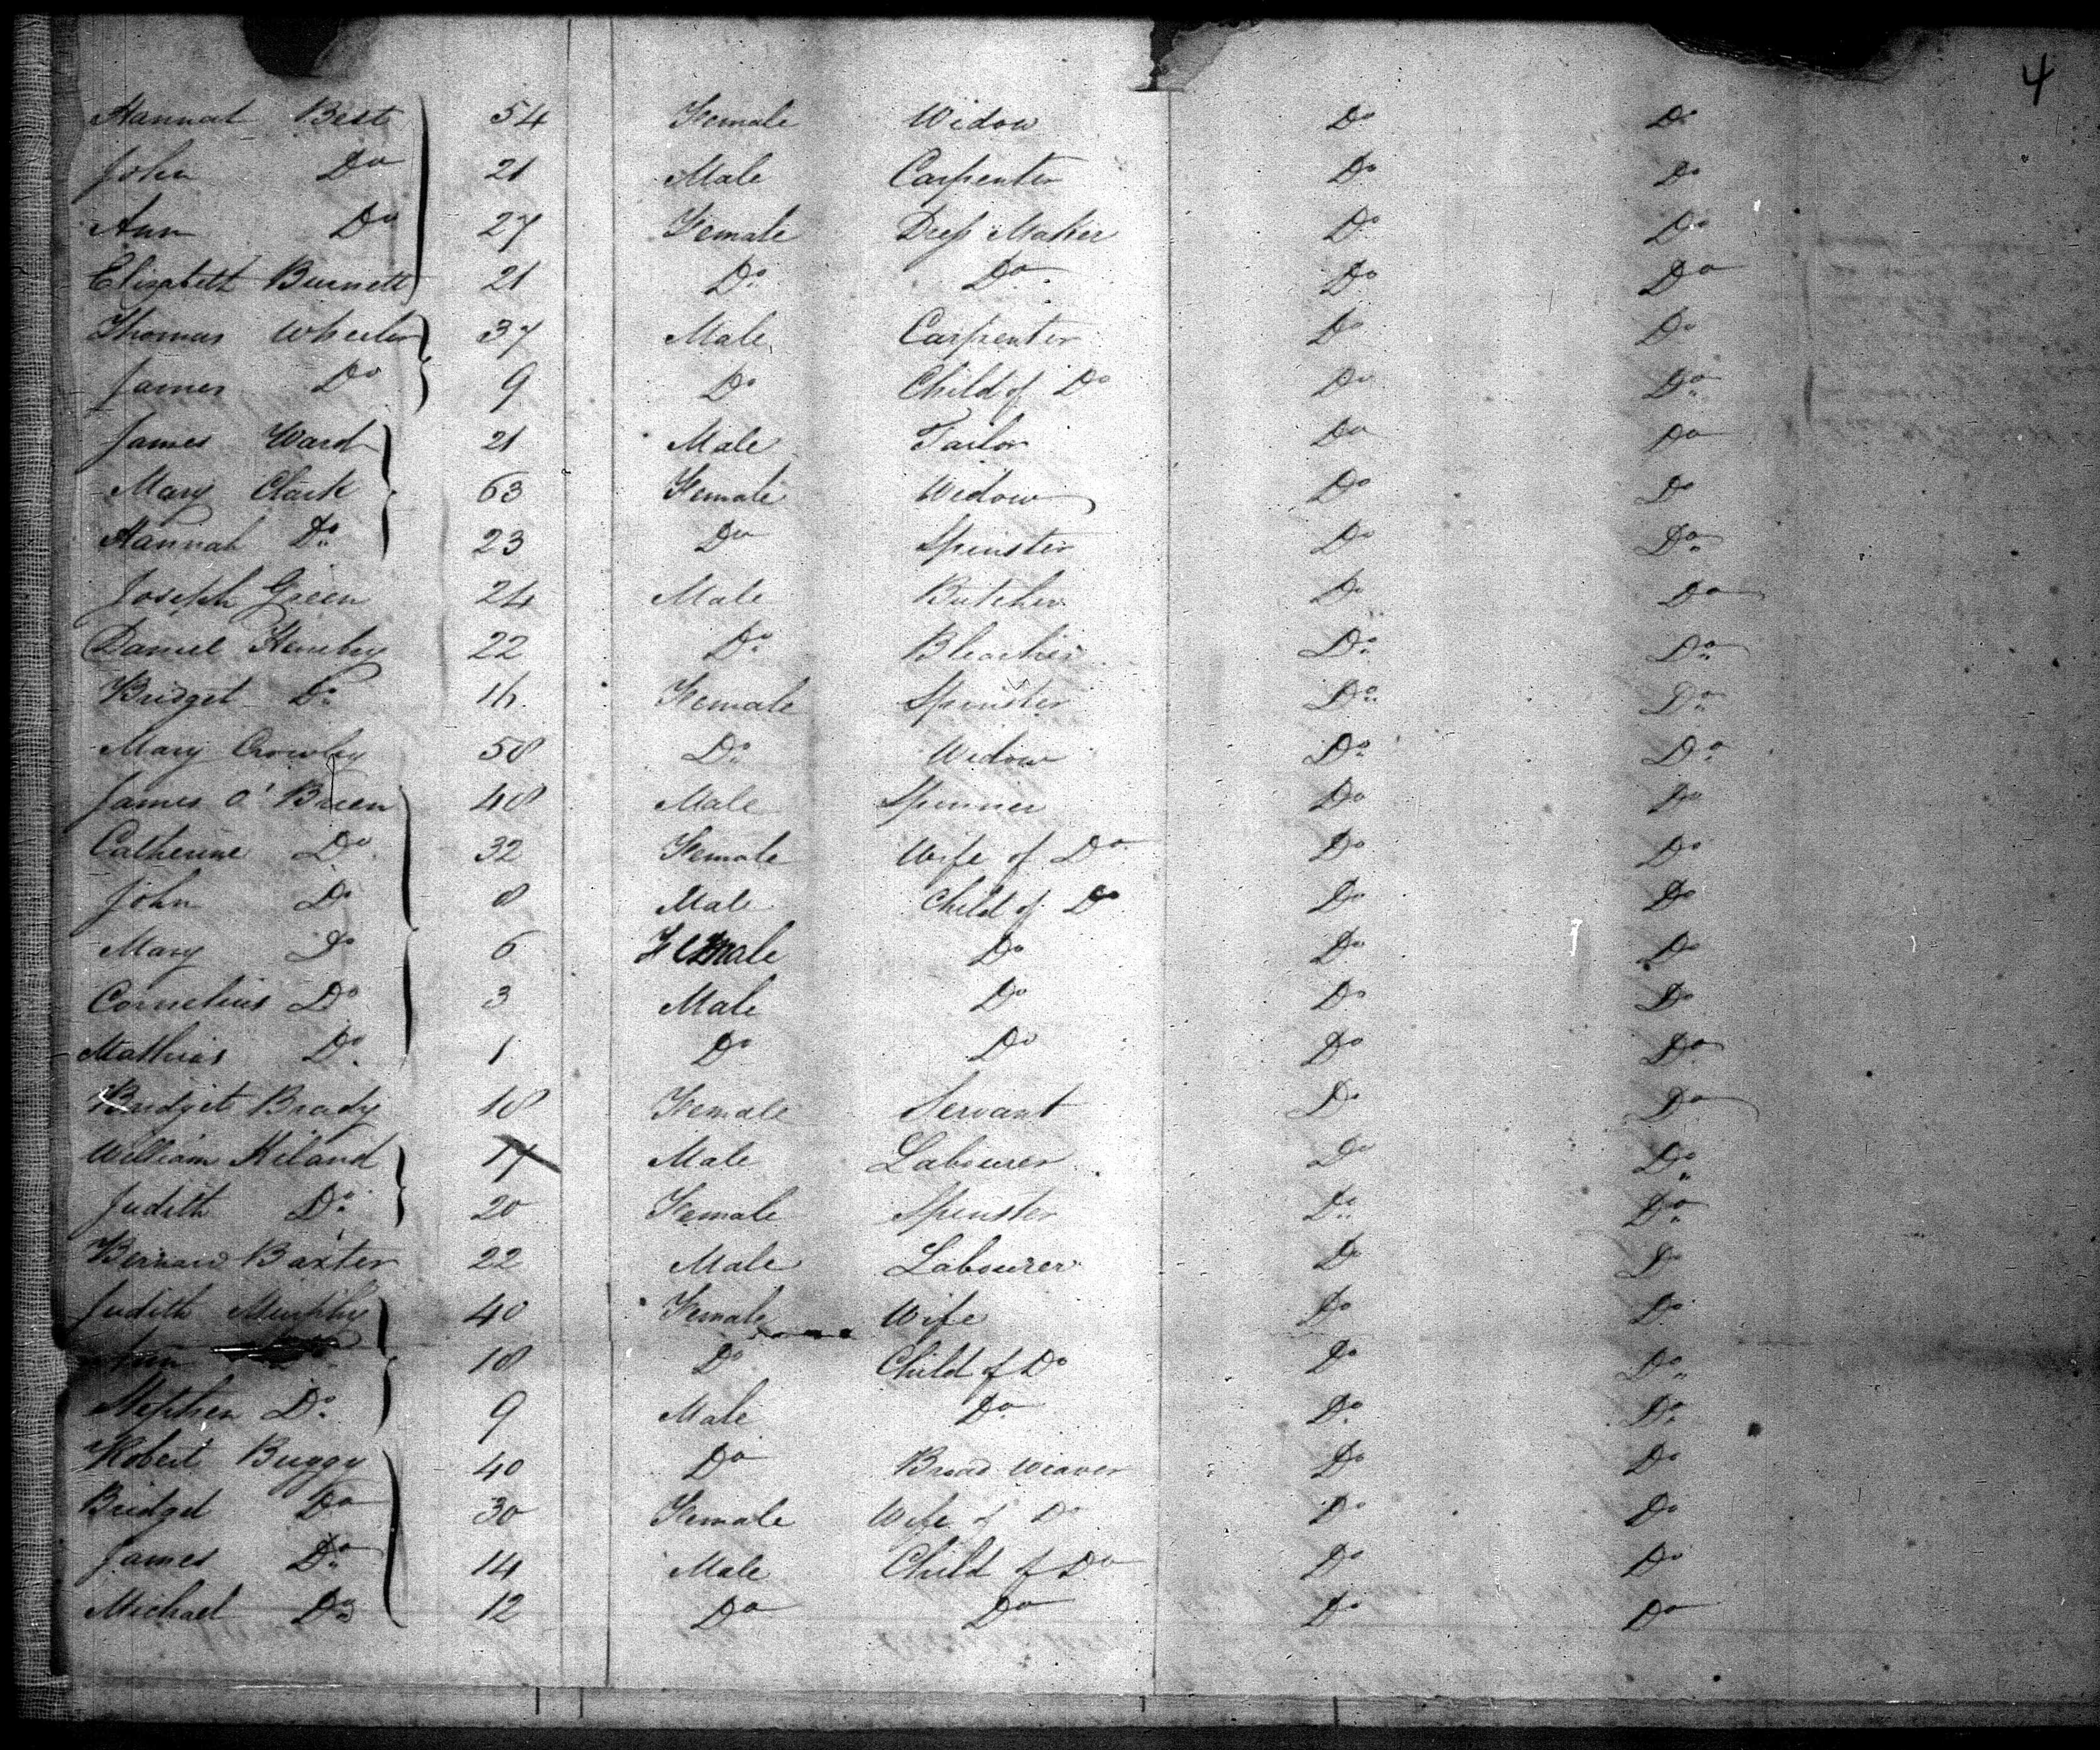 4
Hannah Best 54 Female Widow Do Do
John Do 21 Male Carpenter Do Do
Ann Do 27 Female Dress Maker Do Do
Elizabeth Burnett 21 Do Do Do Do
Thomas Wheeler 37 Male Carpenter Do Do
James Do 9 Do Child of Do Do Do
James Ward 21 Male Tailor Do Do
Mary Clark 63 Female Widow Do Do
Hannah Do 23 Do Spinster Do Do
Joseph Green 24 Male Butcher Do Do
Daniel 22 Do Bleacher Do Do
Bridget Do Female Spinster Do Do
Mary Crowley 58 Do Widow Do Do
James O'Brien 48 Male Spinner Do Do
Catherine Do 32 Female Wife of Do Do Do
John Do 8 Male Child of Do Do Do
Mary Do 6 Female Do Do Do
Cornelius Do 3 Male Do Do Do
Mathias Do 1 Do Do Do Do
Bridget Brady 18 Female Servant Do Do
William Hiland 17 Male Labourer Do Do
Judith Do 20 Female Spinster Do Do
Bernard Baxter 22 Male Labourer Do Do
Judith Murphy 40 Female Wife Do Do
Ann Do 18 Do Child of Do Do Do
Stephen Do 9 Male Do Do Do
Robert Buggy 40 Do Broad Weaver Do Do
Bridget Do 30 Female Wife of Do Do Do
James Do 14 Male Child of Do Do Do
Michael Do 12 Do Do Do Do